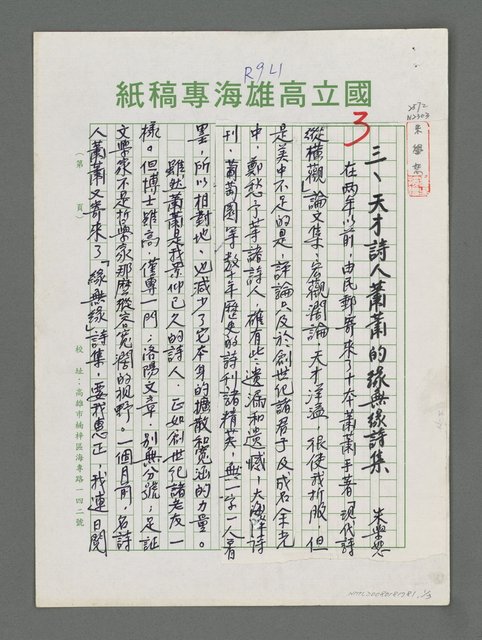 R9L1
國立高雄海專稿紙
3
三、天才詩人蕭蕭的緣無緣詩集
朱學恕
在兩年以前,由民郵寄來了十本蕭蕭手著「現代詩
縱橫觀」論文集;宏觀濶論,天才洋溢,很使我折服,但
是美中不足的是,評論只及於創世紀諸君子及成名余光
中、鄭愁予等諸詩人,確有此遺漏和遺憾,大海洋詩
刊、葡萄園等數十年歷史的詩刊諸精英,無一字一人着
墨,所以相對地、也減少了它本身的擴散和寬涵的力量。
雖然蕭蕭是我景仰已久的詩人,正如創世紀諸老友一
樣。但博士雖高,僅專一門;洛陽文章,別無分號;足証
文學家不是哲學家那麼縱容寬濶的視野。一個月前,名詩
人蕭蕭又寄來了「緣無緣」詩集,要我惠正,我連日閱
(第 頁)
校址:高雄市楠梓區海專路一四二號